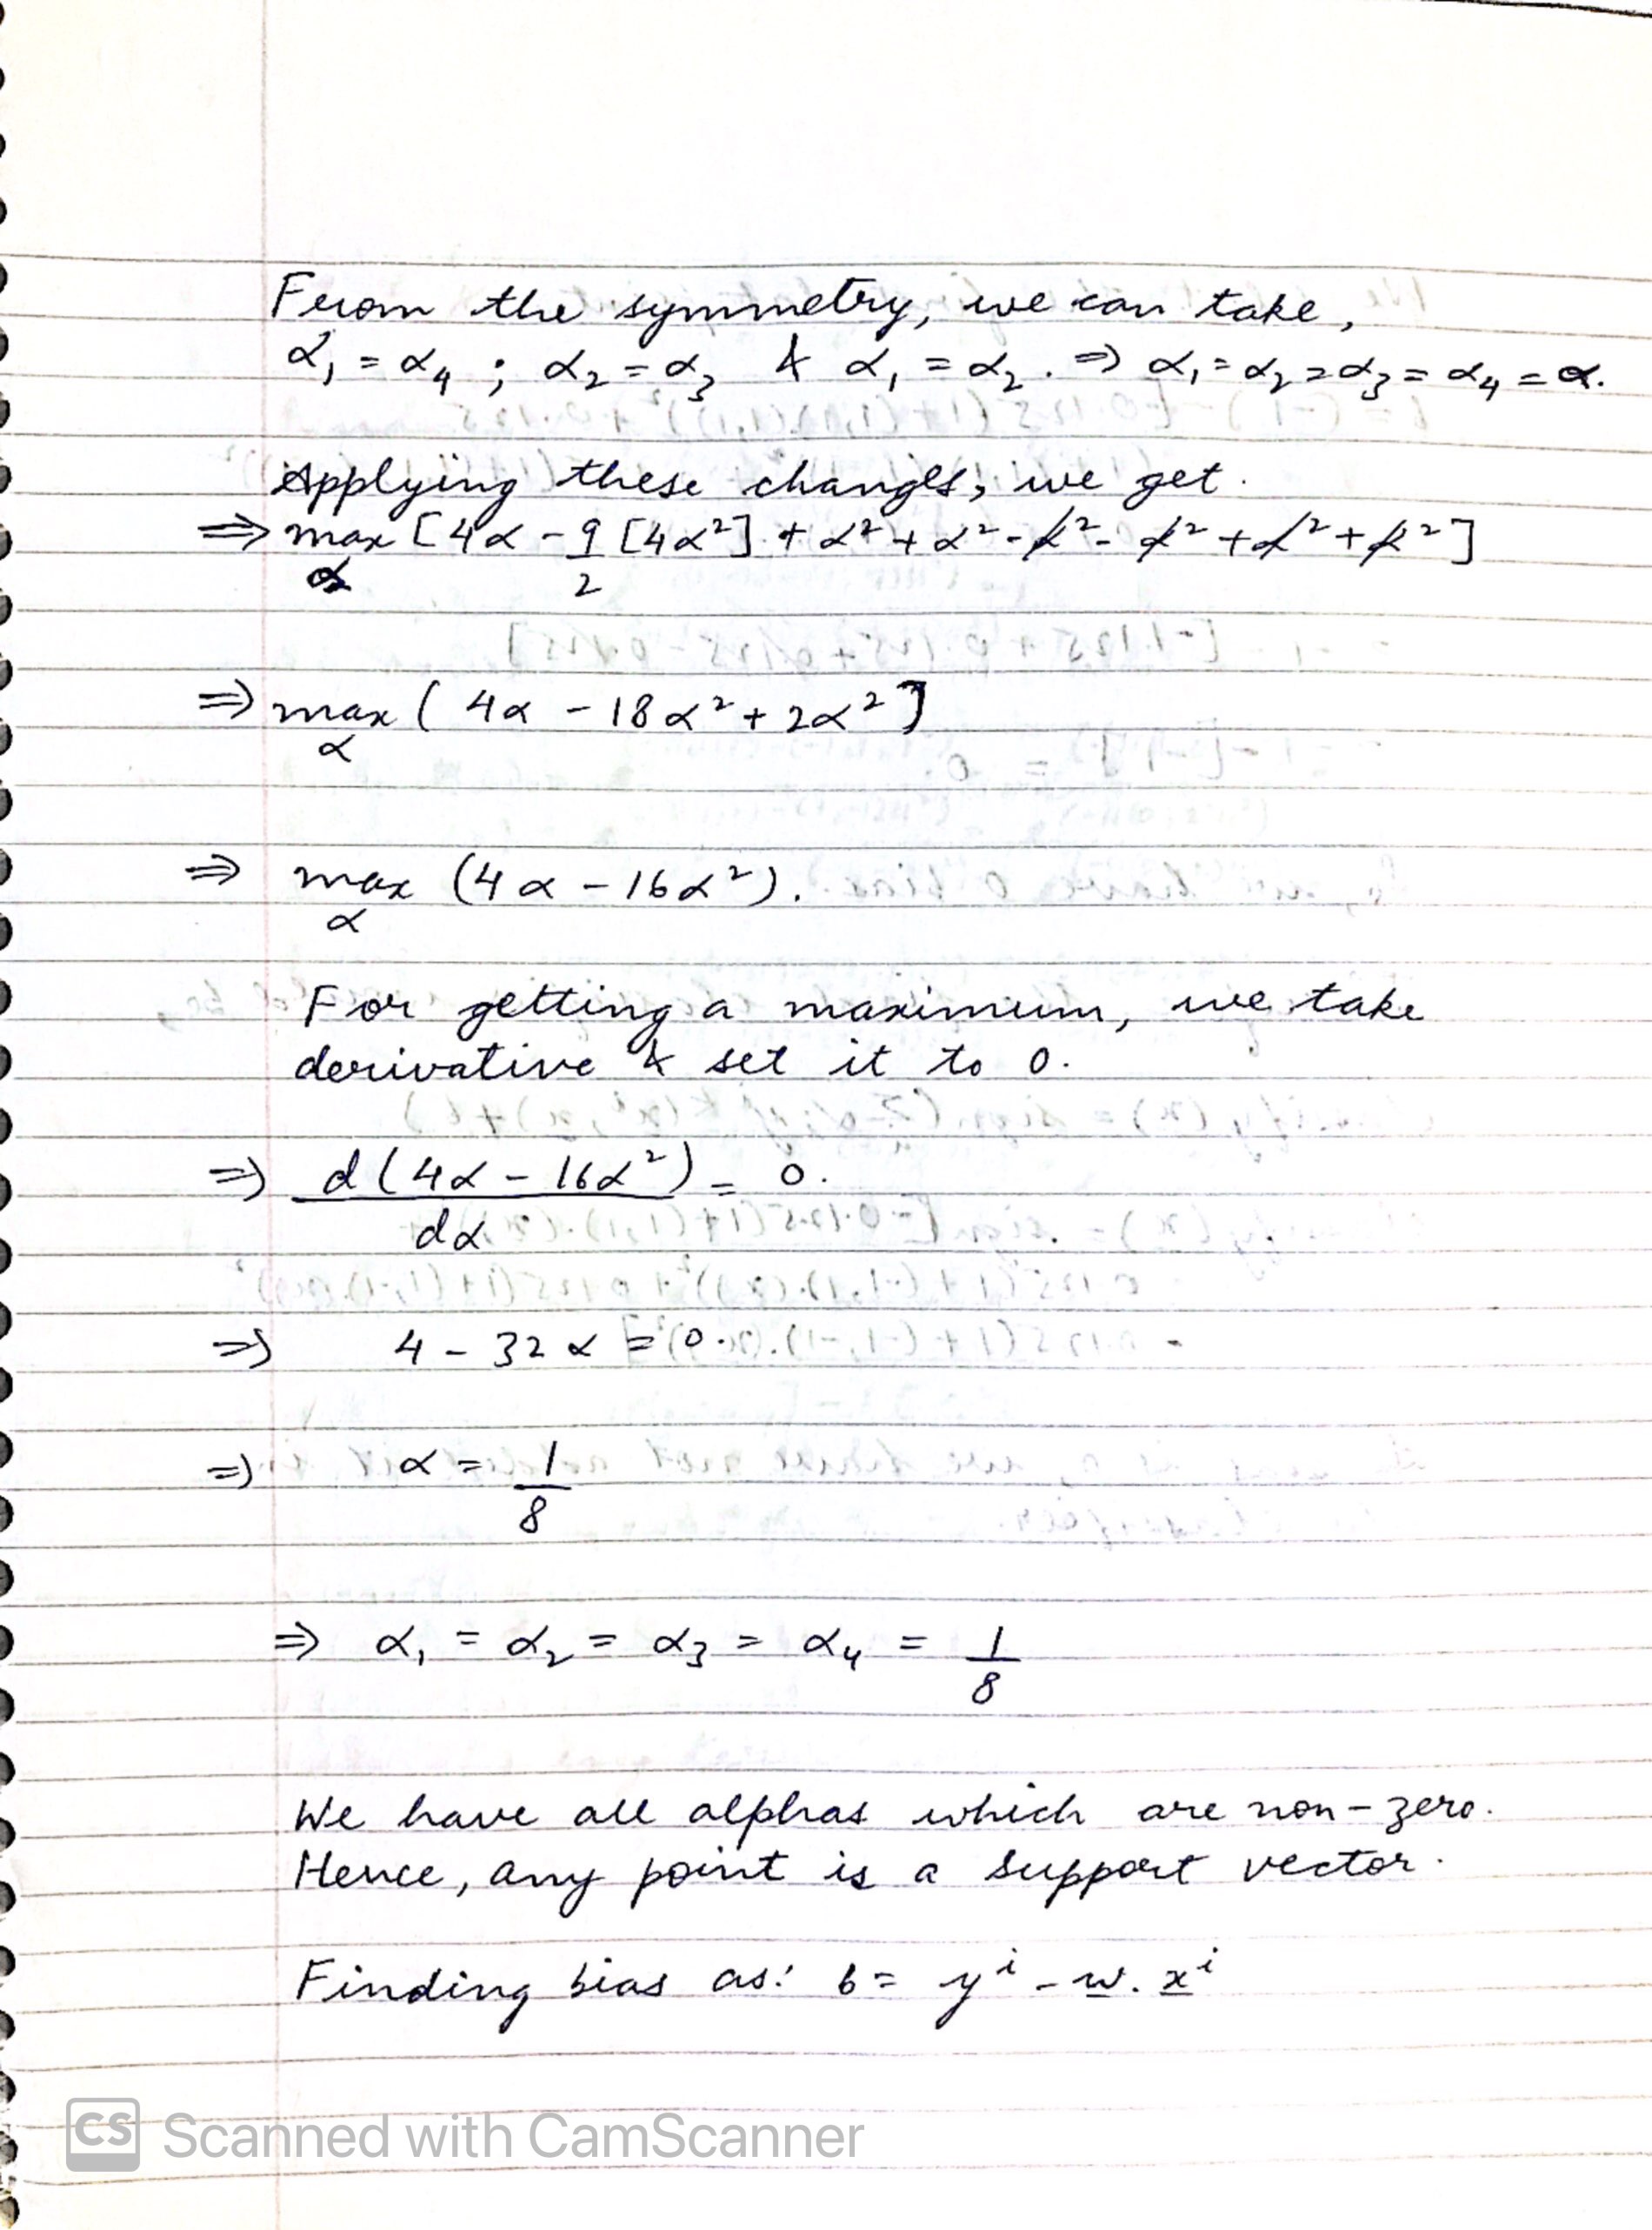 From the symmetry, we can take,
α₁ = α₄ ; α₂ = α₃ & α₁ = α₂. ⇒ α₁ = α₂ = α₃ = α₄ = α.
Applying these changes, we get.
⇒ max [4α - 9/2 [4α²] + α² + α² - α² - α² + α² + α²]
α
⇒ max ( 4α - 18α² + 2α² ]
α
⇒ max (4α - 16α²).
α
For getting a maximum, we take
derivative & set it to 0.
⇒ d(4α - 16α²) = 0.
dα
⇒ 4 - 32α = 0.
⇒ α = 1/8
⇒ α₁ = α₂ = α₃ = α₄ = 1/8
We have all alphas which are non-zero.
Hence, any point is a support vector.
Finding bias as: b = yⁱ - w. xⁱ
CS Scanned with CamScanner